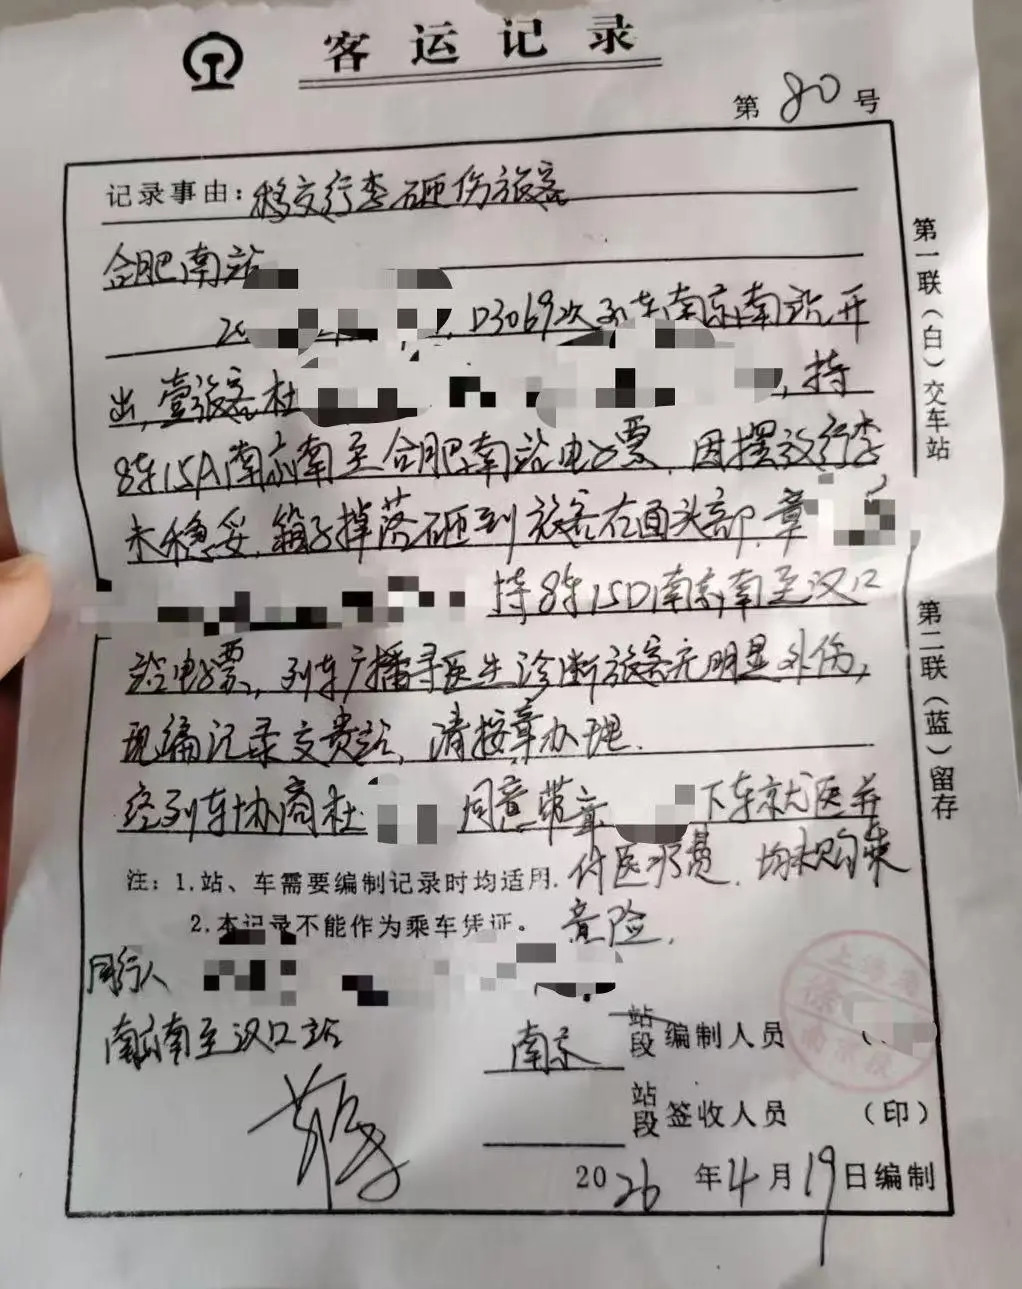 客运记录
第80号
记录事由：移交行李砸伤旅客
合肥南站
20
D3069次列车南京南站开
出，壹旅客杜
，持
8车15A南京南至合肥南站电子票，因摆放行李
未稳妥，箱子掉落砸到旅客右面头部，章
持8车15D南京南至汉口
站电子票，列车广播寻医生诊断旅客无明显外伤，
现编记录交贵站，请按章办理．
经列车协商杜
同意带章
下车就医并
付医疗费．均未购乘
意险．
注：1.站、车需要编制记录时均适用．
2.本记录不能作为乘车凭证。
同行人
南京南至汉口站
南京
站段 编制人员
站段 签收人员 （印）
2026年4月19日编制
第一联（白）交车站
第二联（蓝）留存
上海
南京段